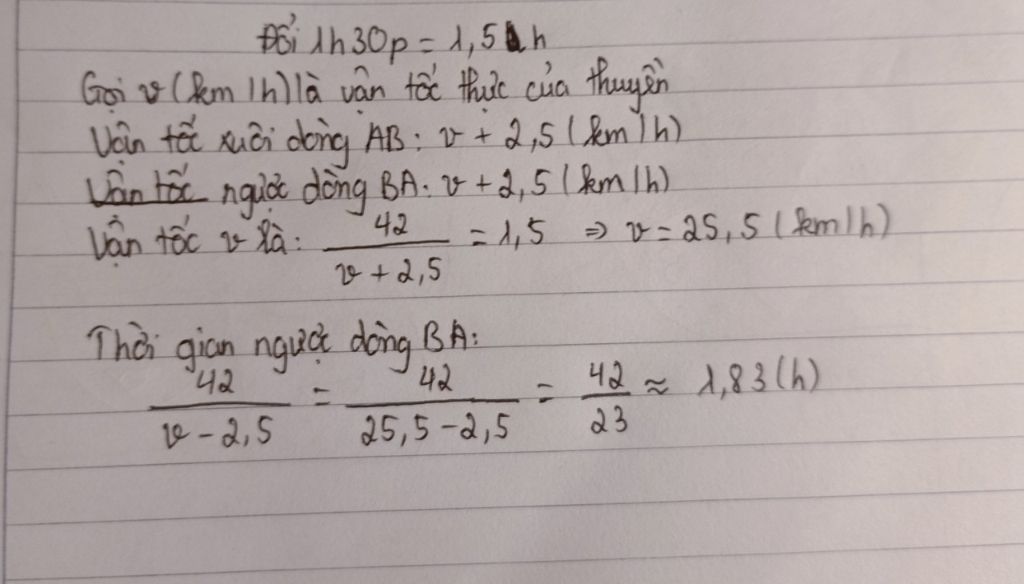 Đổi 1h30p = 1,5 h
Gọi v (km/h) là vận tốc thực của thuyền
Vận tốc xuôi dòng AB: v + 2,5 (km/h)
Vận tốc ngược dòng BA: v + 2,5 (km/h)
Vận tốc v là: 42/(v + 2,5) = 1,5 ⇒ v = 25,5 (km/h)
Thời gian ngược dòng BA:
42/(v - 2,5) = 42/(25,5 - 2,5) = 42/23 ≈ 1,83 (h)